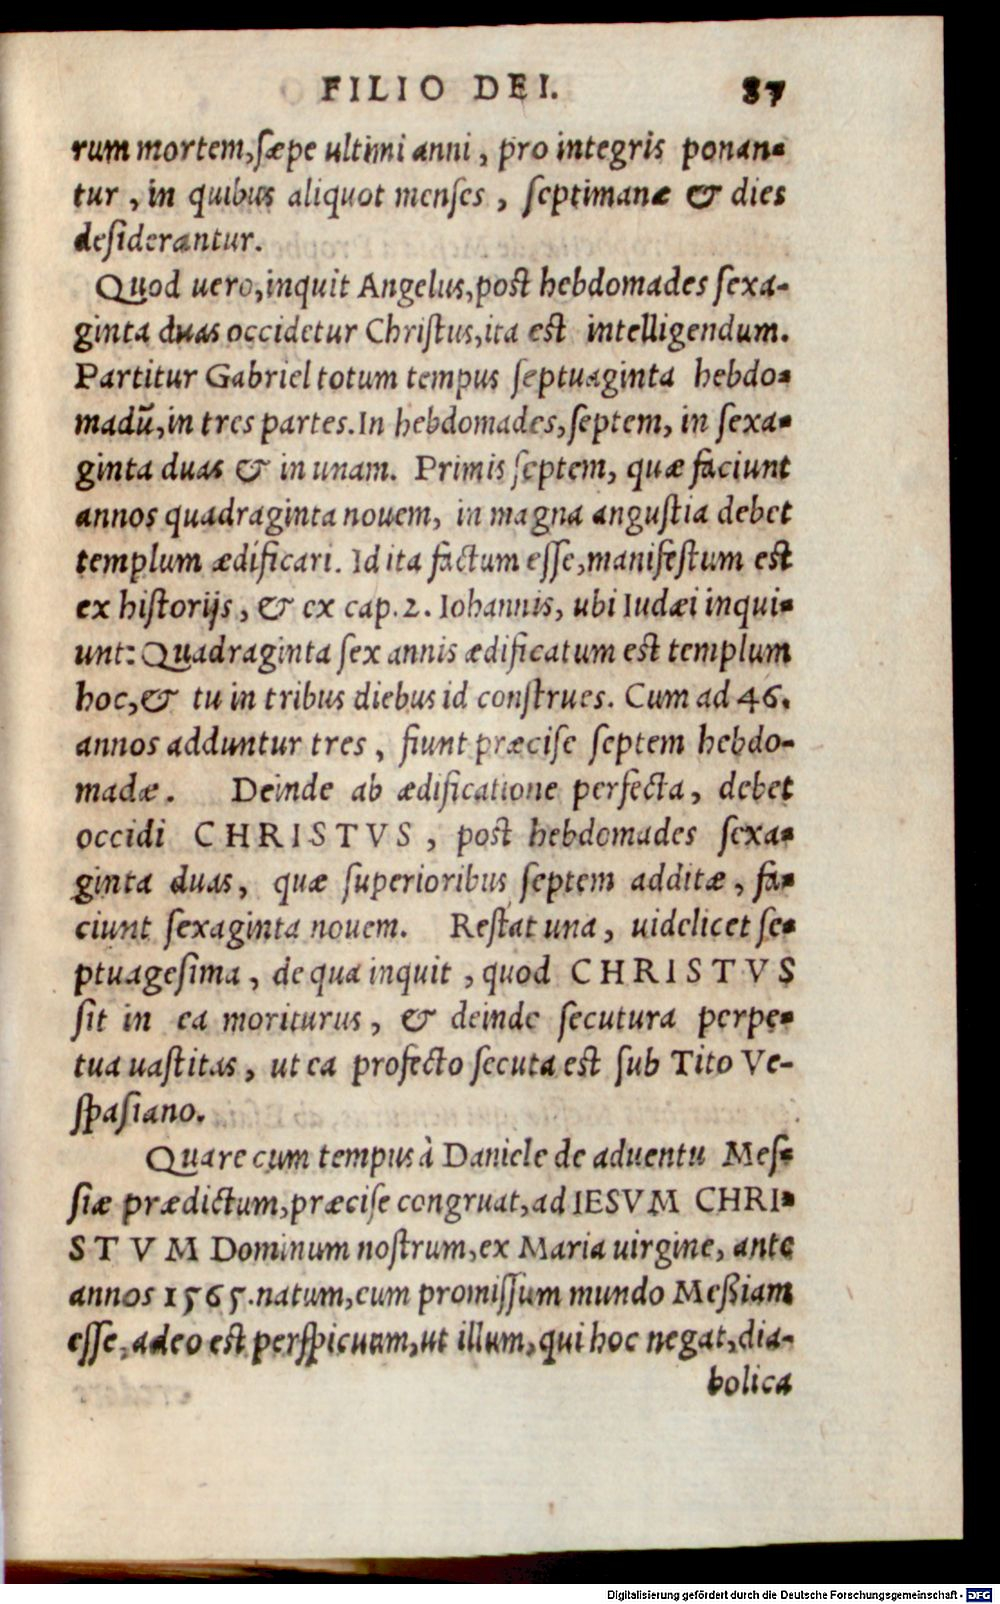 FILIO DEI. 87
rum mortem, sæpe ultimi anni, pro integris ponan-
tur, in quibus aliquot menses, septimanæ & dies
desiderantur.
Quod uero, inquit Angelus, post hebdomades sexa-
ginta duas occidetur Christus, ita est intelligendum.
Partitur Gabriel totum tempus septuaginta hebdo-
madũ, in tres partes. In hebdomades, septem, in sexa-
ginta duas & in unam. Primis septem, quæ faciunt
annos quadraginta nouem, in magna angustia debet
templum ædificari. Id ita factum esse, manifestum est
ex historijs, & ex cap. 2. Iohannis, ubi Iudæi inqui-
unt: Quadraginta sex annis ædificatum est templum
hoc, & tu in tribus diebus id construes. Cum ad 46.
annos adduntur tres, fiunt præcise septem hebdo-
madæ. Deinde ab ædificatione perfecta, debet
occidi CHRISTVS, post hebdomades sexa-
ginta duas, quæ superioribus septem additæ, fa-
ciunt sexaginta nouem. Restat una, uidelicet se-
ptuagesima, de qua inquit, quod CHRISTVS
sit in ea moriturus, & deinde secutura perpe-
tua uastitas, ut ea profecto secuta est sub Tito Ve-
spasiano.
Quare cum tempus à Daniele de aduentu Mes-
siæ prædictum, præcise congruat, ad IESVM CHRI-
STVM Dominum nostrum, ex Maria uirgine, ante
annos 1565. natum, eum promissum mundo Meßiam
esse, adeo est perspicuum, ut illum, qui hoc negat, dia-
bolica
Digitalisierung gefördert durch die Deutsche Forschungsgemeinschaft - DFG